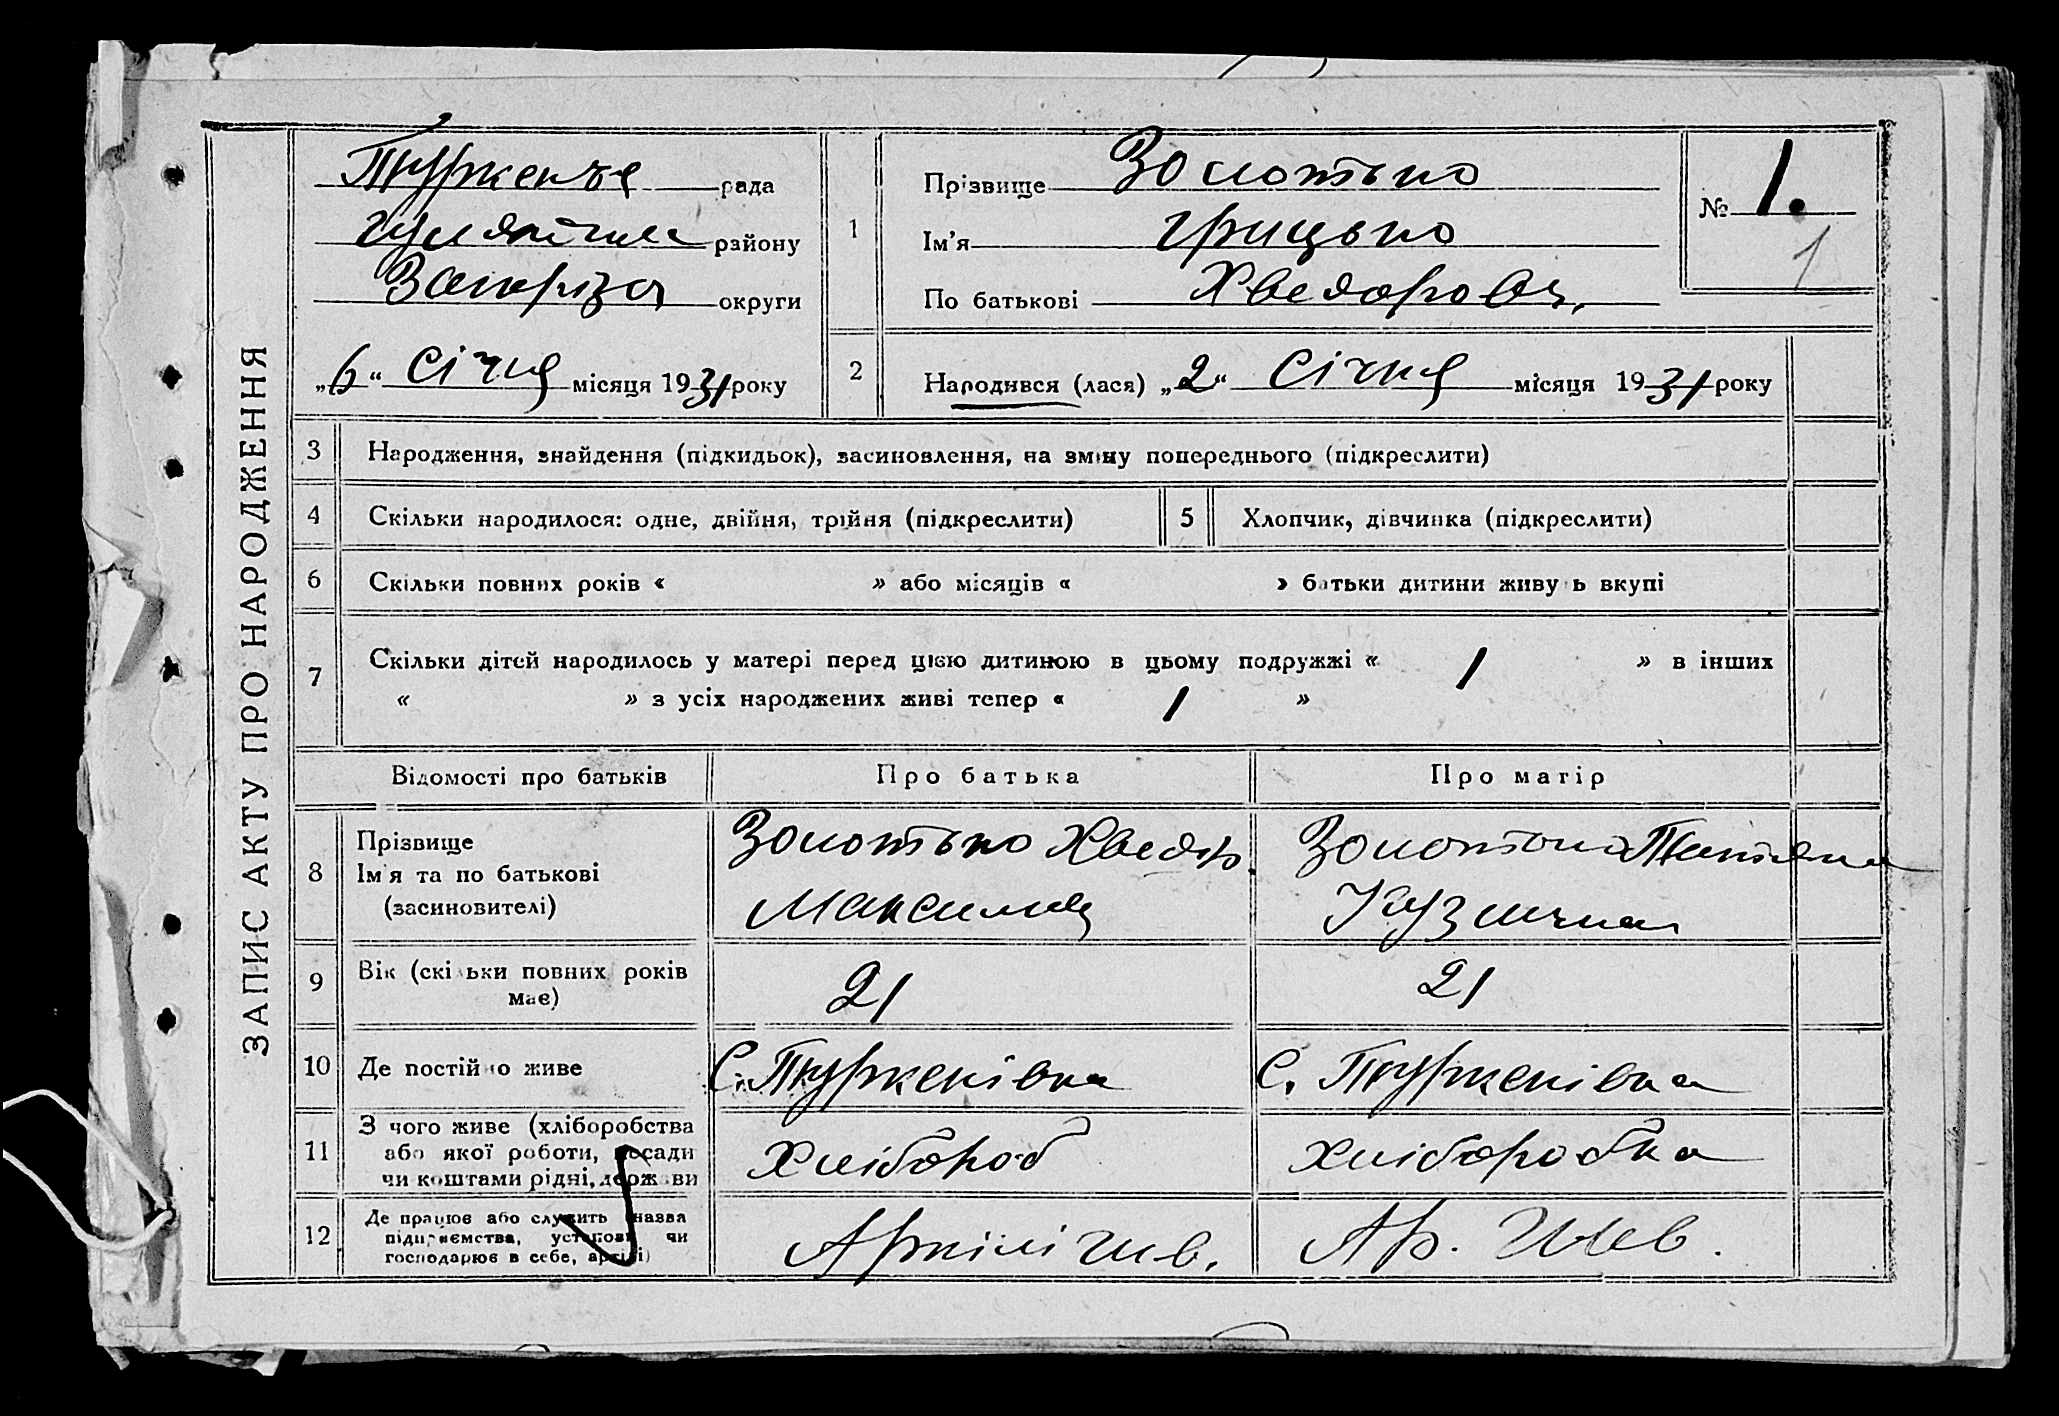 ЗАПИС АКТУ ПРО НАРОДЖЕННЯ
Туркенів рада
Гуляйпіль району
Запоріз округи
„6“ Січня місяця 1931 року
1
Прізвище Золотько
Ім’я Грицько
По батькові Хведорови,
№ 1.
1
2
Народився (лася) „2“ Січня місяця 1931 року
3 Народження, знайдення (підкидьок), засиновлення, на зміну попереднього (підкреслити)
4 Скільки народилося: одне, двійня, трійня (підкреслити)
5 Хлопчик, дівчинка (підкреслити)
6 Скільки повних років « » або місяців « » батьки дитини живуть вкупі
7 Скільки дітей народилось у матері перед цією дитиною в цьому подружжі « 1 » в інших
« » з усіх народжених живі тепер « 1 »
Відомості про батьків
Про батька
Про матір
8 Прізвище
Ім’я та по батькові
(засиновителі)
Золотько Хведір
Максимов
Золотько Татяна
Кузмична
9 Вік (скільки повних років
має)
21
21
10 Де постійно живе
С. Туркенівка
С. Туркенівка
11 З чого живе (хліборобства
або якої роботи, посади
чи коштами рідні, держави
Хлібороб
Хліборобка
12 Де працює або служить (назва
підприємства, установи чи
господарює в себе, артілі)
Ар. Шев.